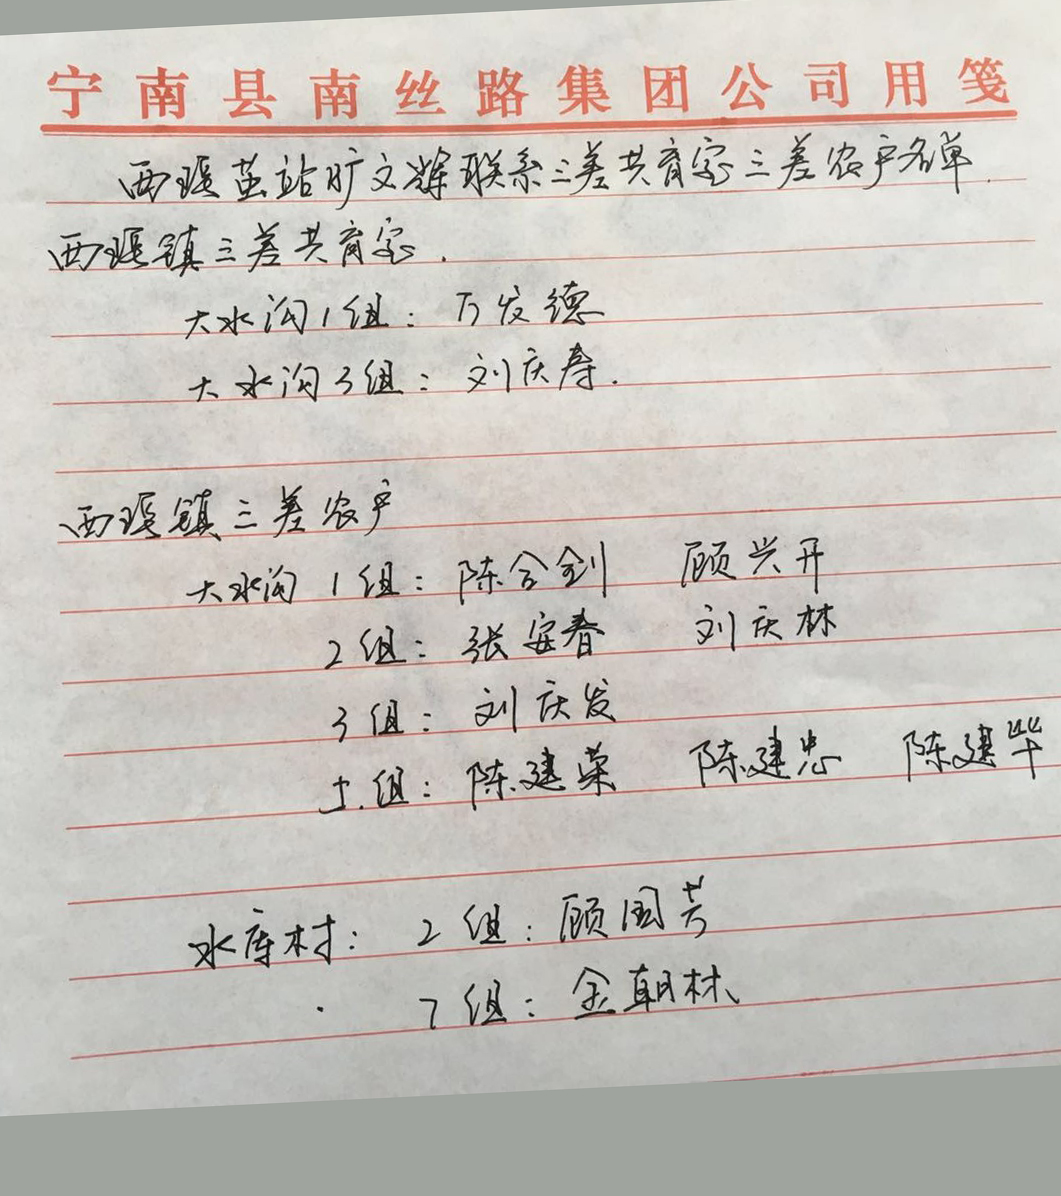 宁南县南丝路集团公司用笺
西瑶茧站旷文辉联系三差共育室三差农户名单.
西瑶镇三差共育室.
大水沟1组：万发德
大水沟3组：刘庆寿.
西瑶镇三差农户
大水沟 1组：陈合剑 顾兴开
2组：张安春 刘庆林
3组：刘庆发
土.组：陈建荣 陈建忠 陈建华
水库村： 2组：顾国芳
7组：金朝林